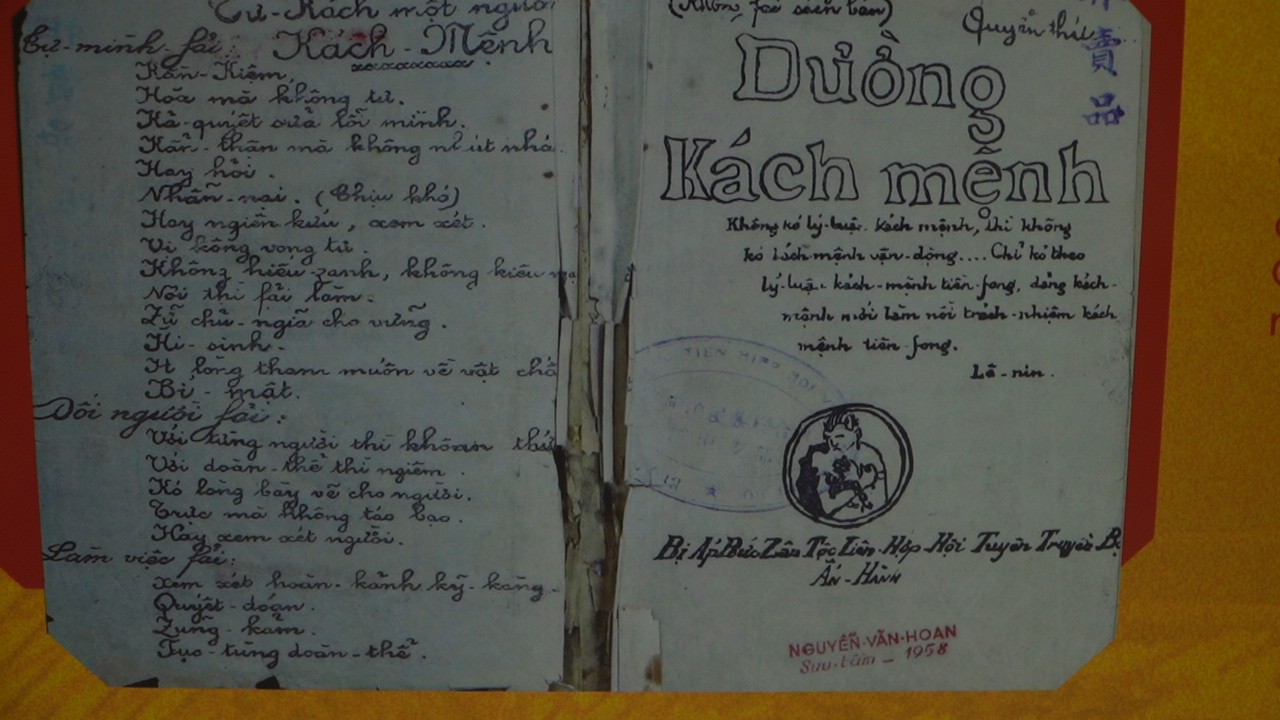 Tư-Kách một người
Kách-Mệnh
Tự-mình fải:
Kần-Kiệm,
Hòa mà không tư.
Kả-quyết sửa lỗi mình.
Kẩn-thận mà không nhút nhá
Hay hỏi.
Nhẫn-nại. (Chịu khó)
Hay ngiên kứu, xem xét.
Vị kông vong tư.
Không hiếu-zanh, không kiêu
Nói thì fải làm.
Zữ chủ-ngiã cho vững.
Hi-sinh.
Ít lòng tham muốn về vật chấ
Bí-mật.
Đối người fải:
Với từng người thì khoan thứ
Với đoàn-thể thì ngiêm
Kó lòng bày vẽ cho người.
Trực mà không táo bạo.
Hay xem xét người.
Làm việc fải:
Xem xét hoàn-kảnh kỹ-kàng.
Quyết-đoán.
Zũng-kảm.
Fục-tùng đoàn-thể.
(Không fải sách bán)
Quyển thứ
賣
品
Đường
Kách mệnh
Không kó lý-luận kách mệnh, thì không
kó kách mệnh vận-động.... Chỉ kó theo
lý-luận kách-mệnh tiền-fong, đảng kách-
mệnh mới làm nổi trách-nhiệm kách
mệnh tiền-fong.
Lê-nin.
Bị Áp Bức Zân Tộc Liên-Hợp Hội Tuyên Truyền Bộ
Ấn-Hành
NGUYỄN-VĂN-HOAN
Sưu-tầm - 1958